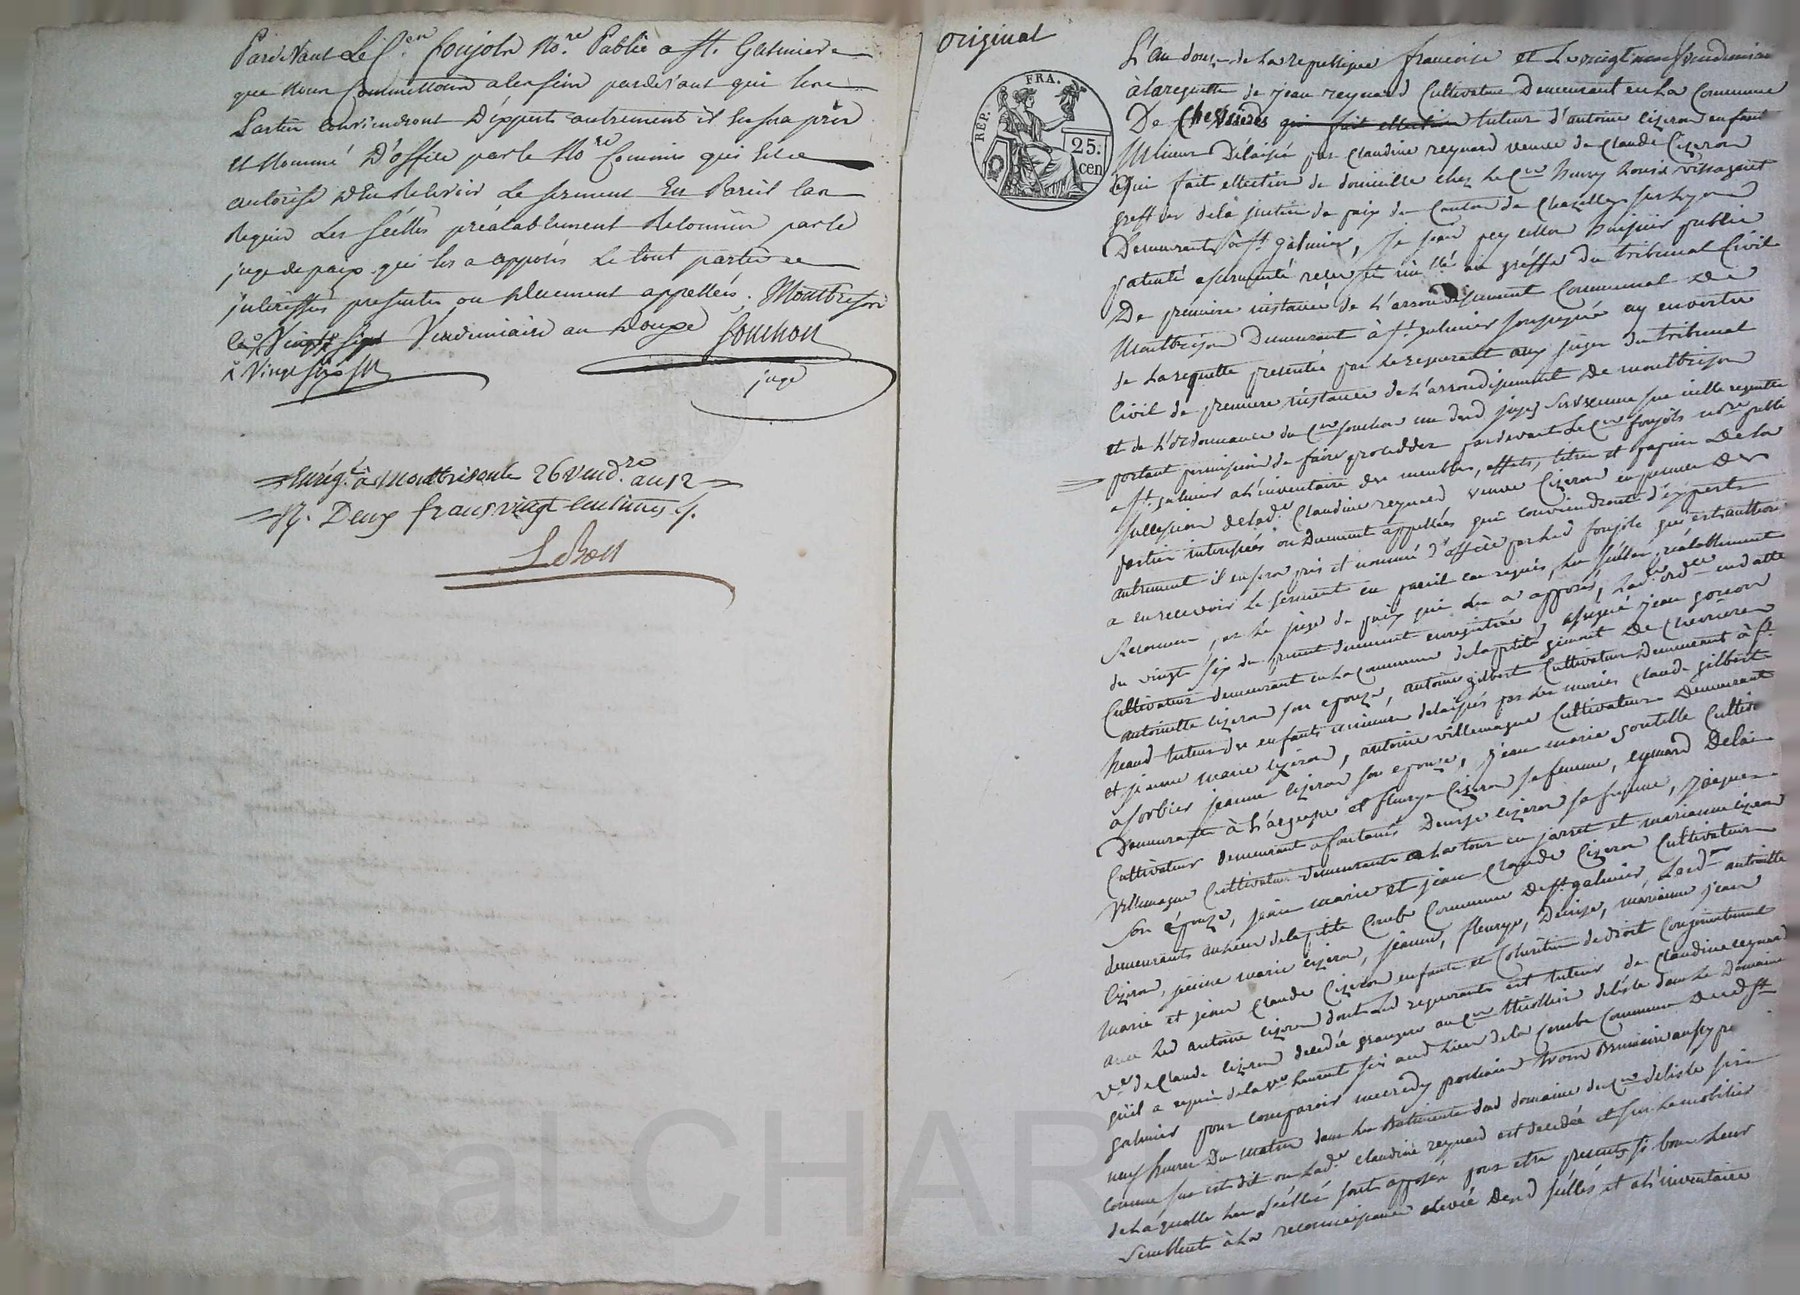 Pardevant Le C.en foujols No.re Public a St. Galmier
que nous Commettons a cet effet pardevant qui les
Parties conviendront D'experts autrement il en sera pris
et Nommé D'office par le No.re Commis qui est
autorisé D'En Recevoir Le serment En Pareil Cas
Requis Les scellés préalablement Reconnus par le
juge de paix qui les a apposés Le tout parties
intéressées présentes ou Duement appellées. Montbrison
Le Vingt six Vendemiaire an Douze Souchon
x Vingt six
juge
Enrég.é à Montbrison le 26 vend.re an 12
R. Deux francs vingt centimes
LeBon
original
REP. FRA.
25. cen
L'an douze de la republique francoise et le vingt neuf vendemiaire
à la requette de jean reynard Cultivateur Demeurant en la Commune
De Chevrieres qui fait ellection tuteur d'antoine cizeron enfant
Mineur Délaissé par claudine reynard veuve de claude Cizeron
Lequi fait ellection de domicille chez le C.en henry Louis
greffier de la justice de paix du Canton de Chazelles sur Lyon
Demeurant à St. galmier, je jean peycellon huissier public
patenté assermenté reçu et au gréffe du tribunal Civil
De premiere instance de L'arrondissement Communal De
Montbrison Demeurant à St. galmier soussigné ay en vertu
de La requette présentée par le requerant aux juges du tribunal
Civil de premiere instance de L'arrondissement De montbrison
et de L'ordonnance du C.en souchon un desd juges sur icelle requette
portant permission de faire proceder pardevant Le C.en foujols no.re public
a St. galmier à L'inventaire des meubles, effets, titres et papiers De la
succession de lad.e Claudine reynard veuve Cizeron en presence des
parties interessées ou Duement appellées qui conviendront d'experts
autrement il en sera pris et nommé d'office par led foujols qui est authorisé
a en recevoir le serment en pareil cas requis, les scellés préalablement
Reconnus par le juge de paix qui les a apposés, Lad. ord.ce en datte
du vingt six du present duement enregistrée, assigné jean
Cultivateur demeurant en la Commune de la petite gimont De Chevrieres
antoinette cizeron son epouze, antoine gilbert Cultivateur Demeurant à St.
heand tuteur des enfants mineurs délaissés par les mariés claude gilbert
et jeanne marie cizeron, antoine villemagne Cultivateur Demeurant
a Sorbier jeanne cizeron son epouze, jean marie Cultiva
Demeurant à L'argasse et fleurye Cizeron sa femme, De la
Cultivateur demeurant a fontanès Denise cizeron sa femme, jacques
Villemagne Cultivateur demeurant a La tour en jarret et marianne cizeron
Son épouze, jean marie et jean Claude Cizeron Cultivateurs
demeurants au lieu de la petite Combe Commune De St. galmier, Lesd. antoinette
Cizeron, jeanne marie cizeron, jeanne, fleurye, Denise, marianne jean
Marie et jean claude Cizeron enfants et Cohéritiers de droit Conjointement
avec led antoine cizeron dont led requerant est tuteur de Claudine reynard
V.e de Claude cizeron decedée grangere au C.en delisle dans le Domaine
qu'il a requis de la V.e au d lieu de la Combe Commune dud St.
galmier pour comparoir mecredy prochain trois Brumaire aussy pe
neuf heures Du matin dans les Batiments dud domaine du C.en delisle
comme sus est dit ou lad.e Claudine reynard est decedée et sur le mobilier
de laquelle les scéllés sont apposés pour etre presents si bon leur
Semblent à la reconnaissance et levée Desd scéllés et a l'inventaire